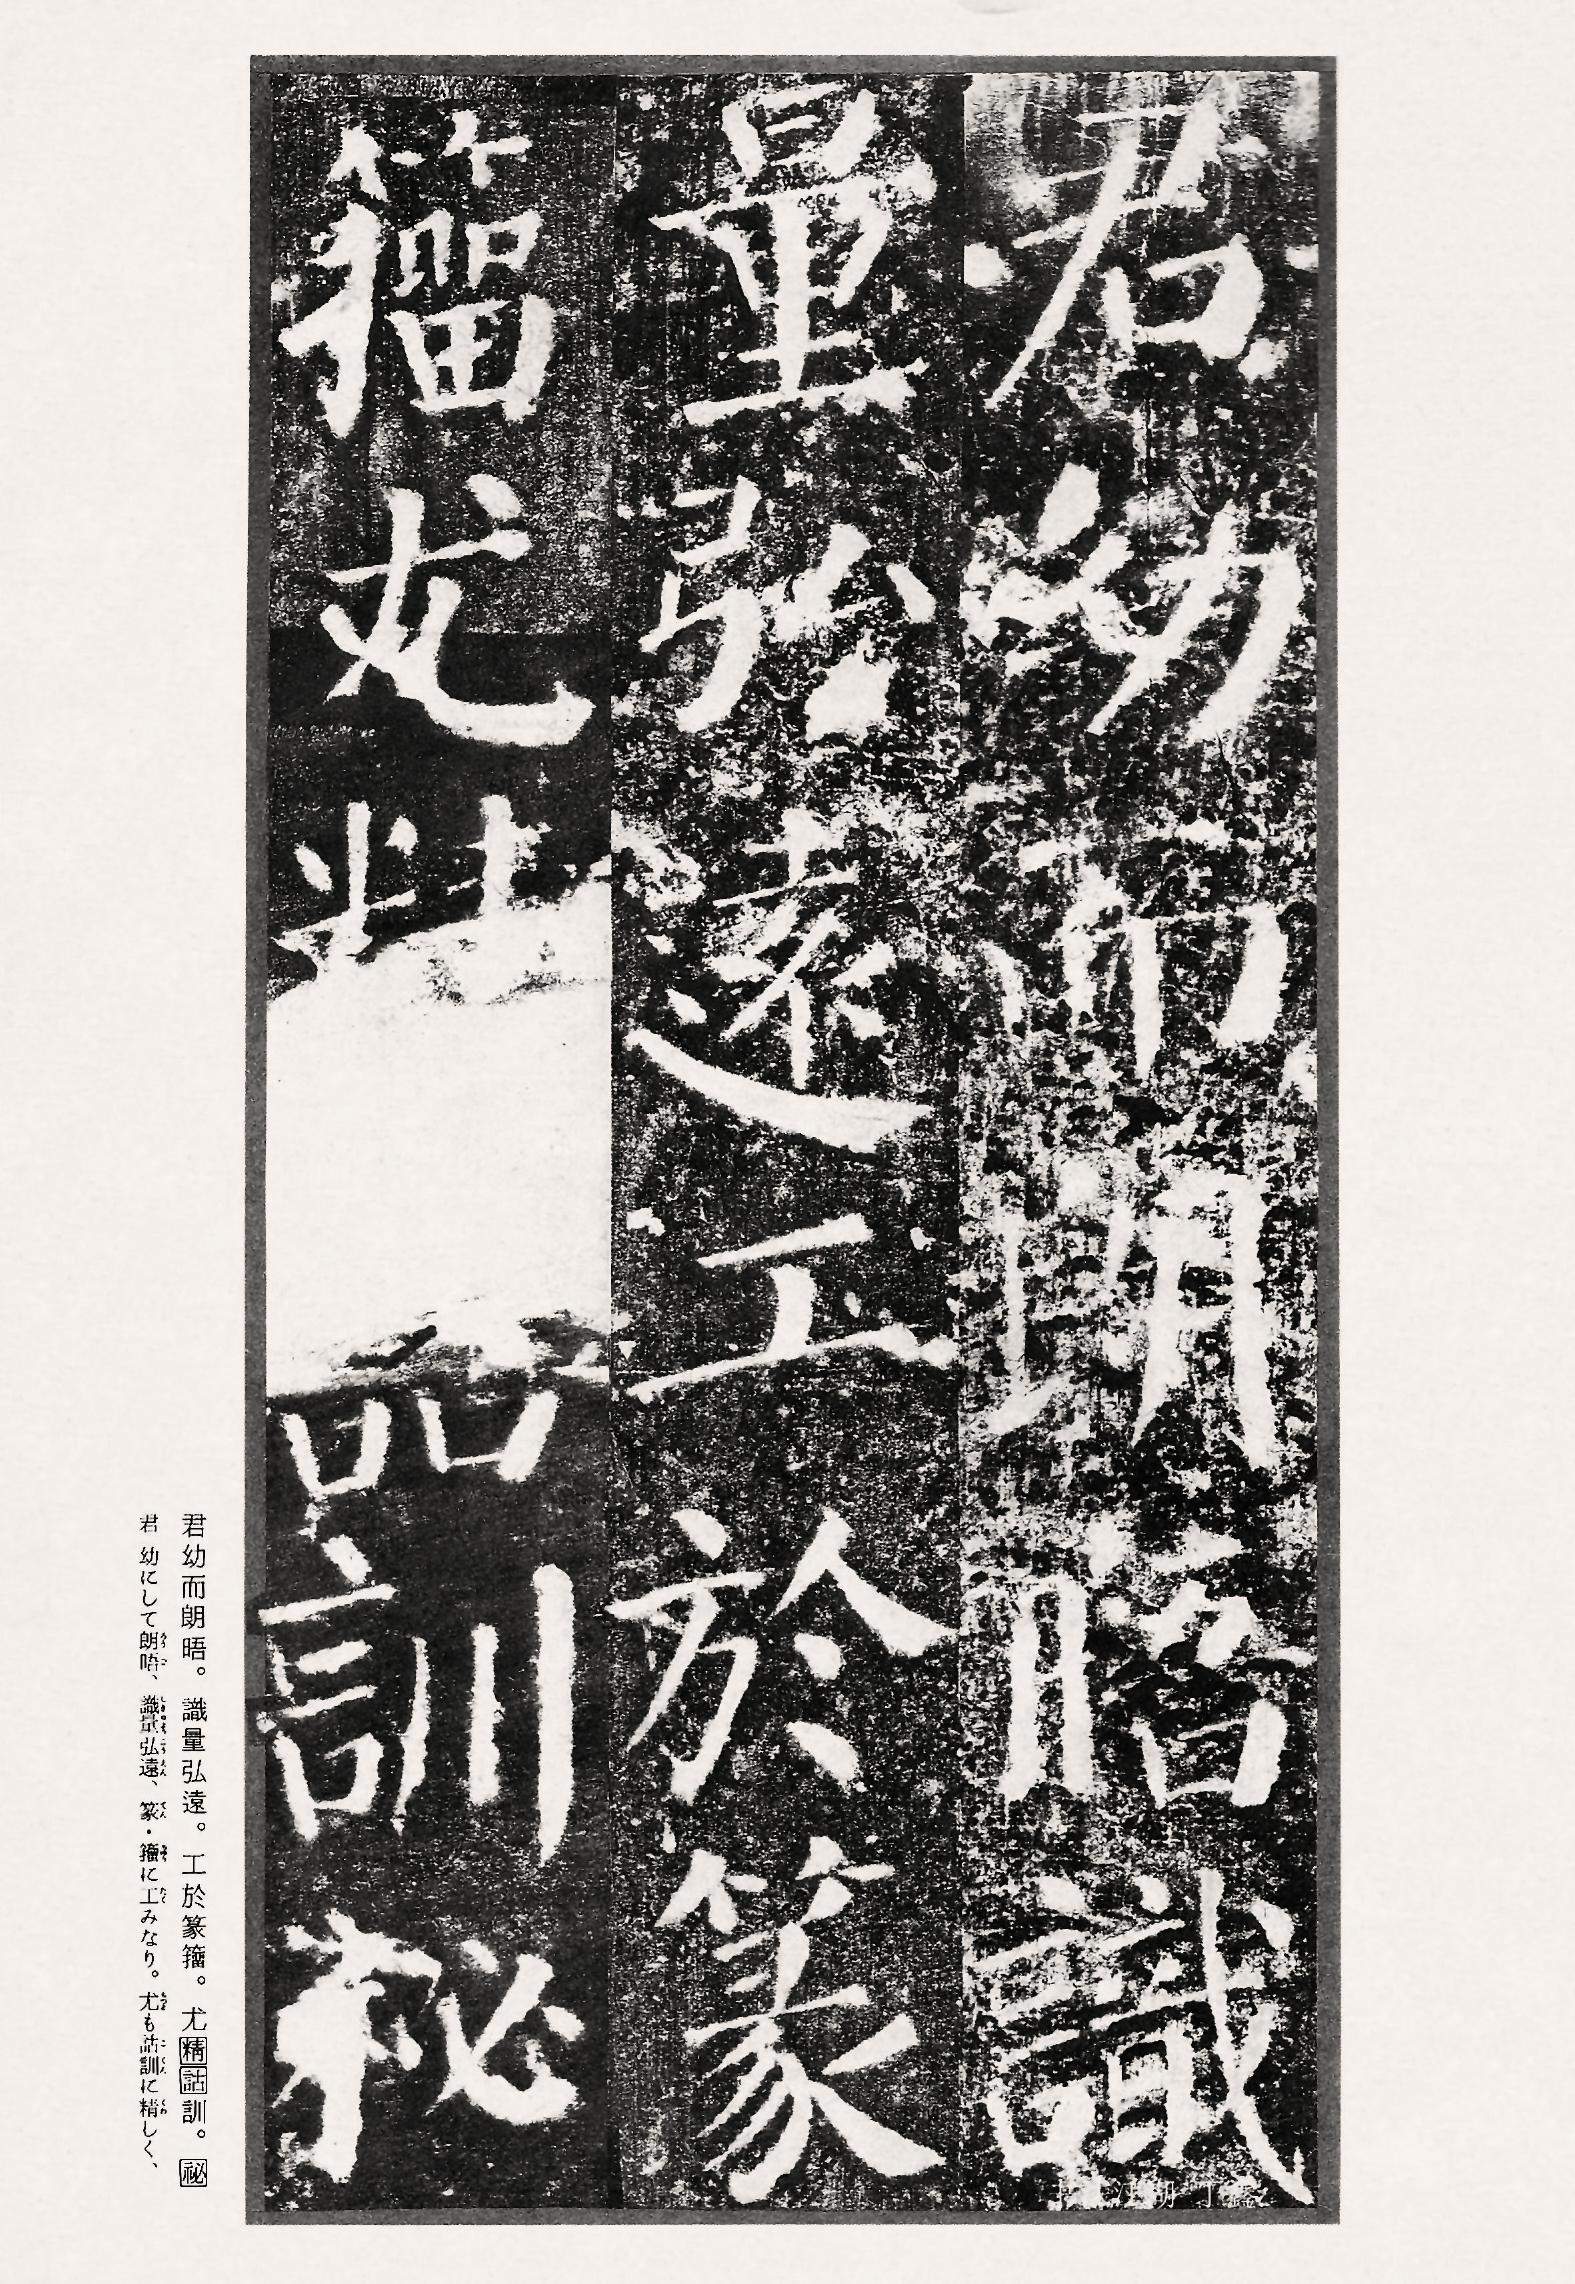 君幼而朗晤識
量弘遠工於篆
籀尤精詁訓秘
君幼而朗晤。識量弘遠。工於篆籀。尤精詁訓。祕
君 幼にして朗晤、識量弘遠、篆・籀に工みなり。尤も詁訓に精しく、